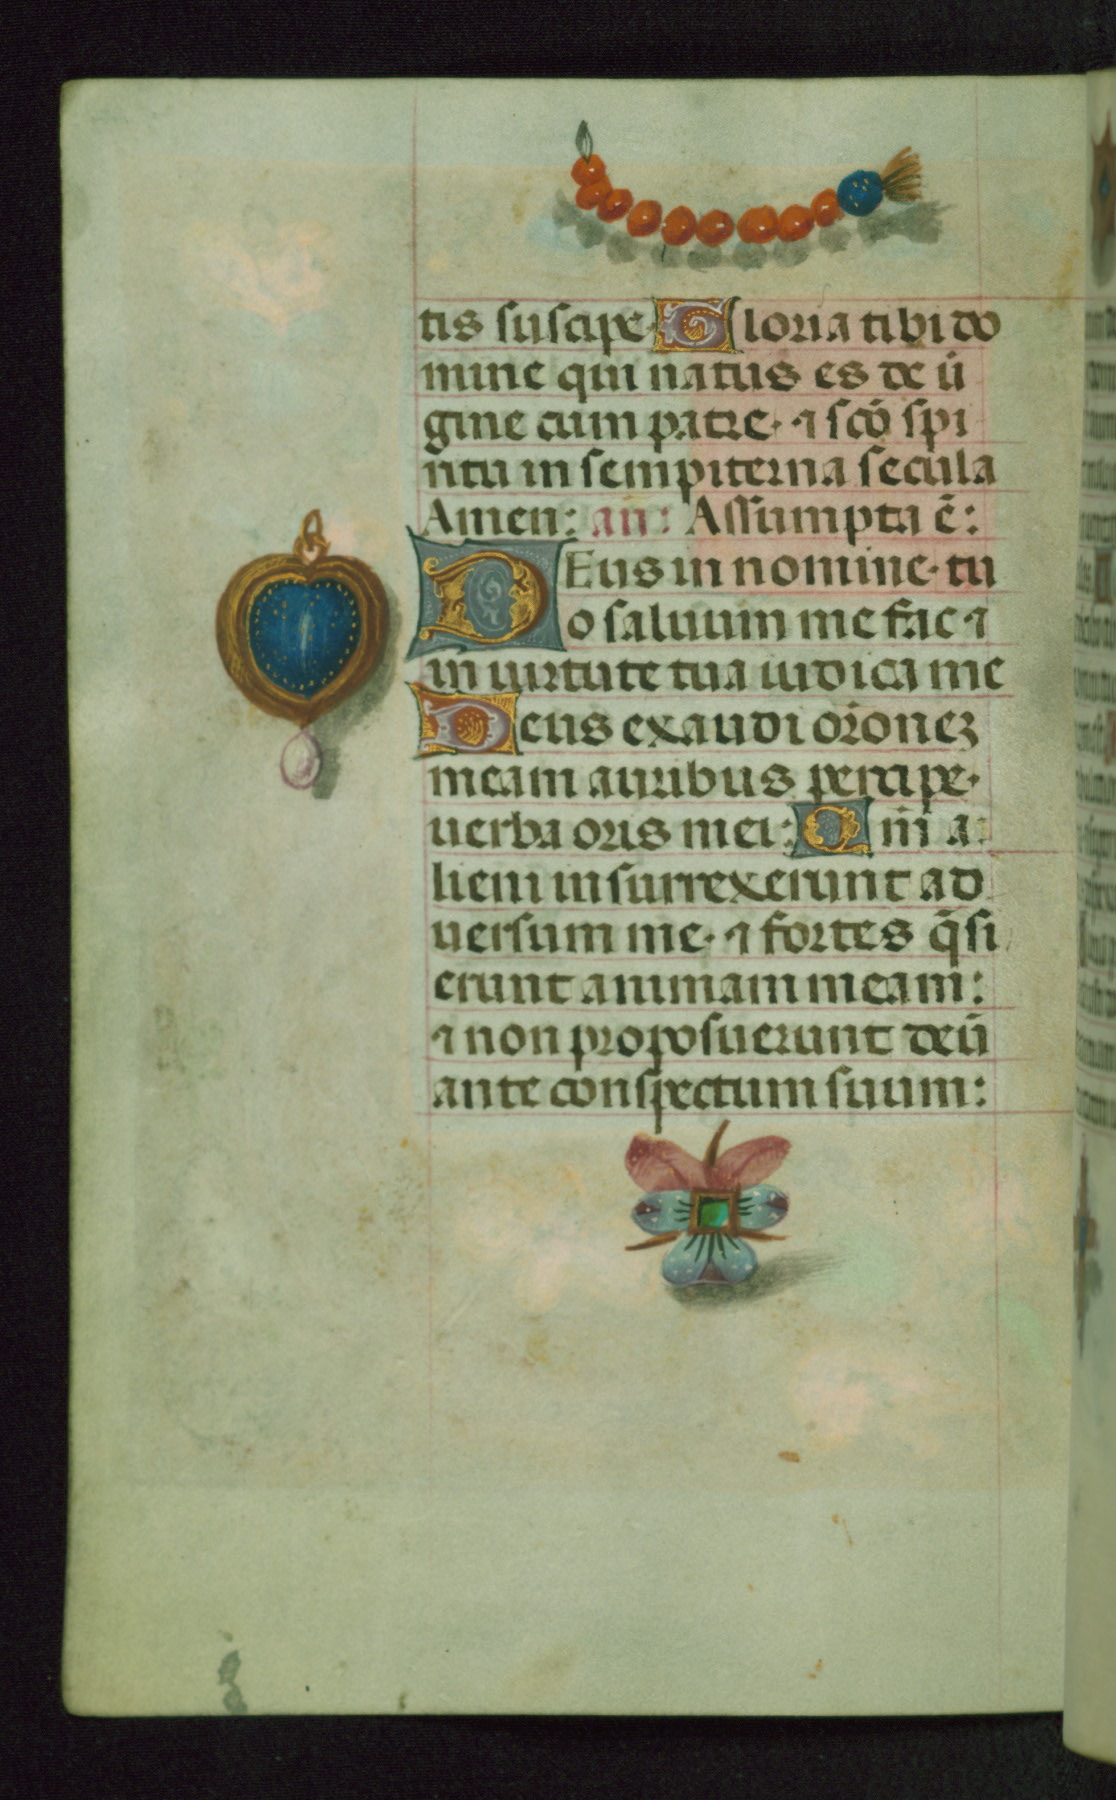 tis suscipe· Gloria tibi do
mine qui natus es de ũ
gine cum patre· ⁊ sc̃o spi
ritu in sempiterna secula
Amen: añ: Assumpta ẽ:
DEus in nomine· tu
o saluum me fac ⁊
in uirtute tua iudica me
Deus exaudi or̃onez
meam auribus percipe·
uerba oris mei: Qm̃ a
lieni insurrexerunt ad
uersum me· ⁊ fortes q̃si
erunt animam meam:
⁊ non proposuerunt deũ
ante conspectum suum: